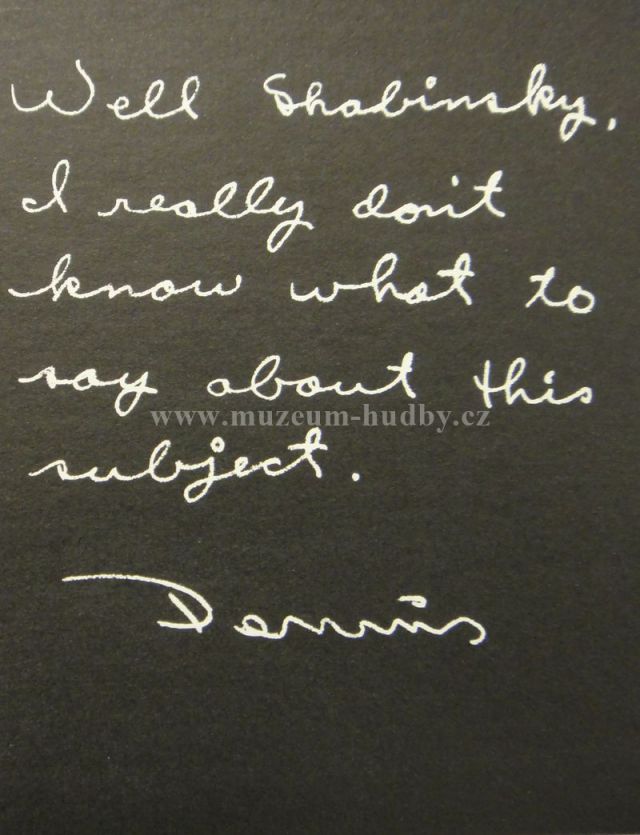 Well Shabinsky,
I really don't
know what to
say about this
www.muzeum-hudby.cz
subject.
Dennis